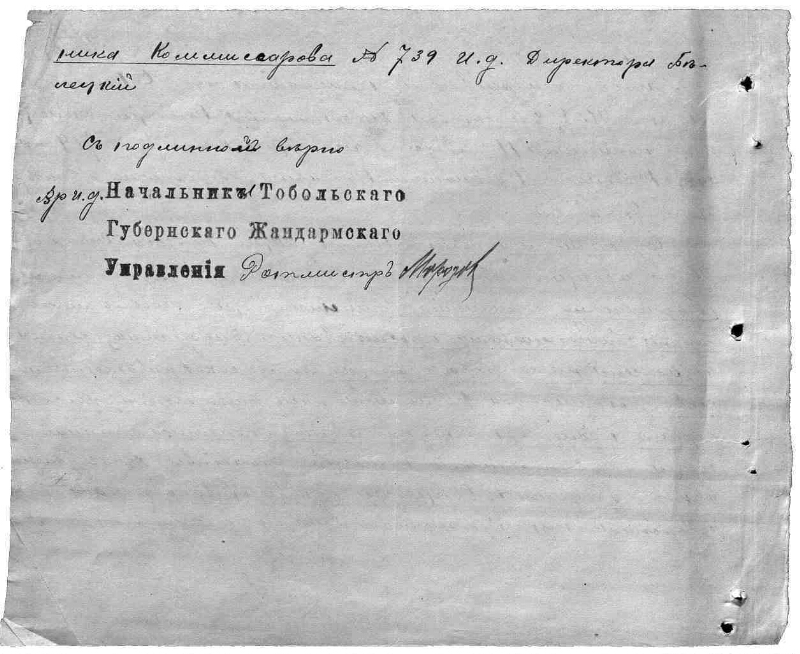 ника Коммиссарова № 739 И.д. Директора Бѣ-
лецкій
Съ подлиннымъ вѣрно
Вр.и.д. Начальника Тобольскаго
Губернскаго Жандармскаго
Управленія Ротмистръ Морозов